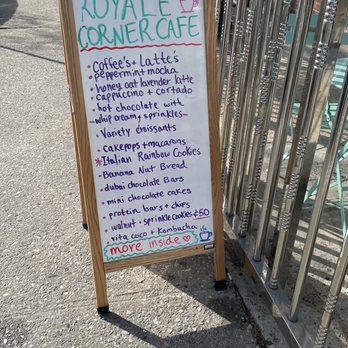 ROYALE
CORNER CAFE
Coffee's + Latte's
peppermint mocha
• honey oat lavender latte
cappuccino + cortado
• hot chocolate with
whip cream + sprinkles
• Variety croissants
• cakepops + macarons
*Italian Rainbow Cookies
• Banana Nut Bread
• dubai chocolate Bars
• mini chocolate cakes
• protein bars + chips
walnut • sprinkle cookies $.50
• vita coco + Kombucha
more inside